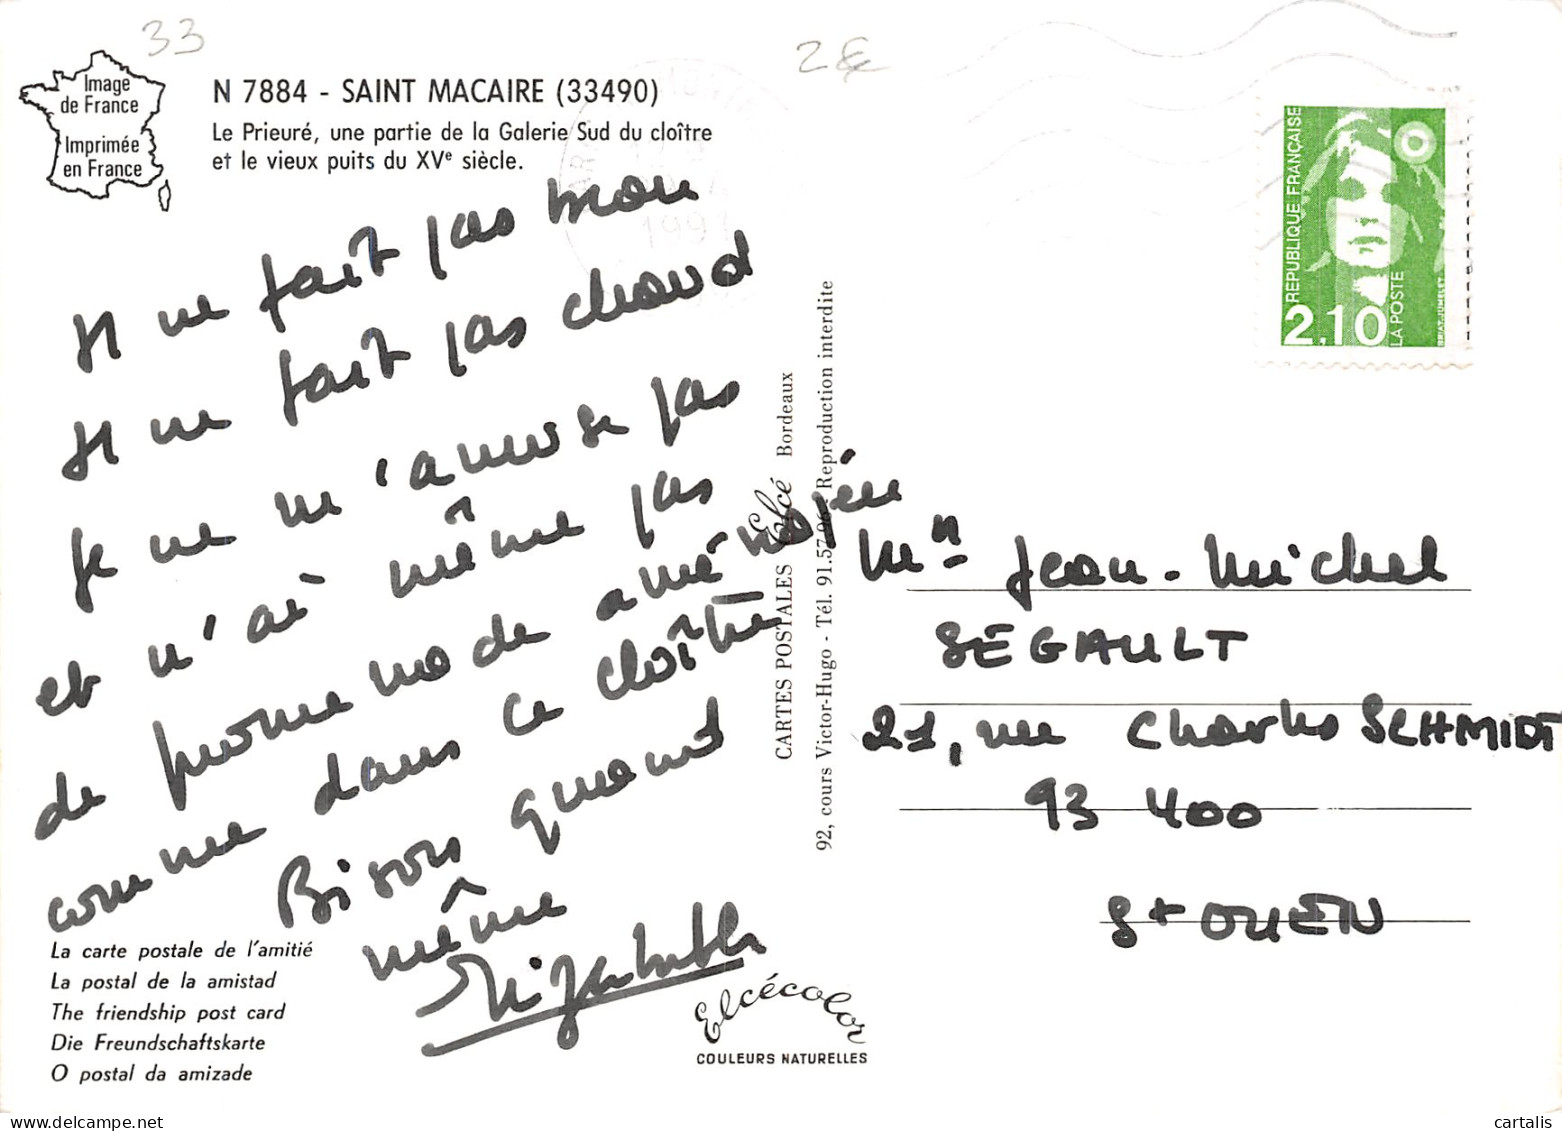 33
2€
Image
de France
Imprimée
en France
N 7884 - SAINT MACAIRE (33490)
Le Prieuré, une partie de la Galerie Sud du cloître
et le vieux puits du XVe siècle.
1991
Il ne fait pas mou
Il ne fait pas chaud
Je ne m'amuse pas
et n'ai même pas
de promenade aménagée
comme dans ce cloître
Bisou quand
même
Elizabeth
La carte postale de l'amitié
La postal de la amistad
The friendship post card
Die Freundschaftskarte
O postal da amizade
Elcécolor
COULEURS NATURELLES
CARTES POSTALES Elcé Bordeaux
92, cours Victor-Hugo - Tél. 91.57.96 - Reproduction interdite
REPUBLIQUE FRANÇAISE
2,10
LA POSTE
BRIAT-JUMELET
Mr Jean-Michel
SEGAULT
21, rue Charles SCHMIDT
93 400
St OUEN
cartalis